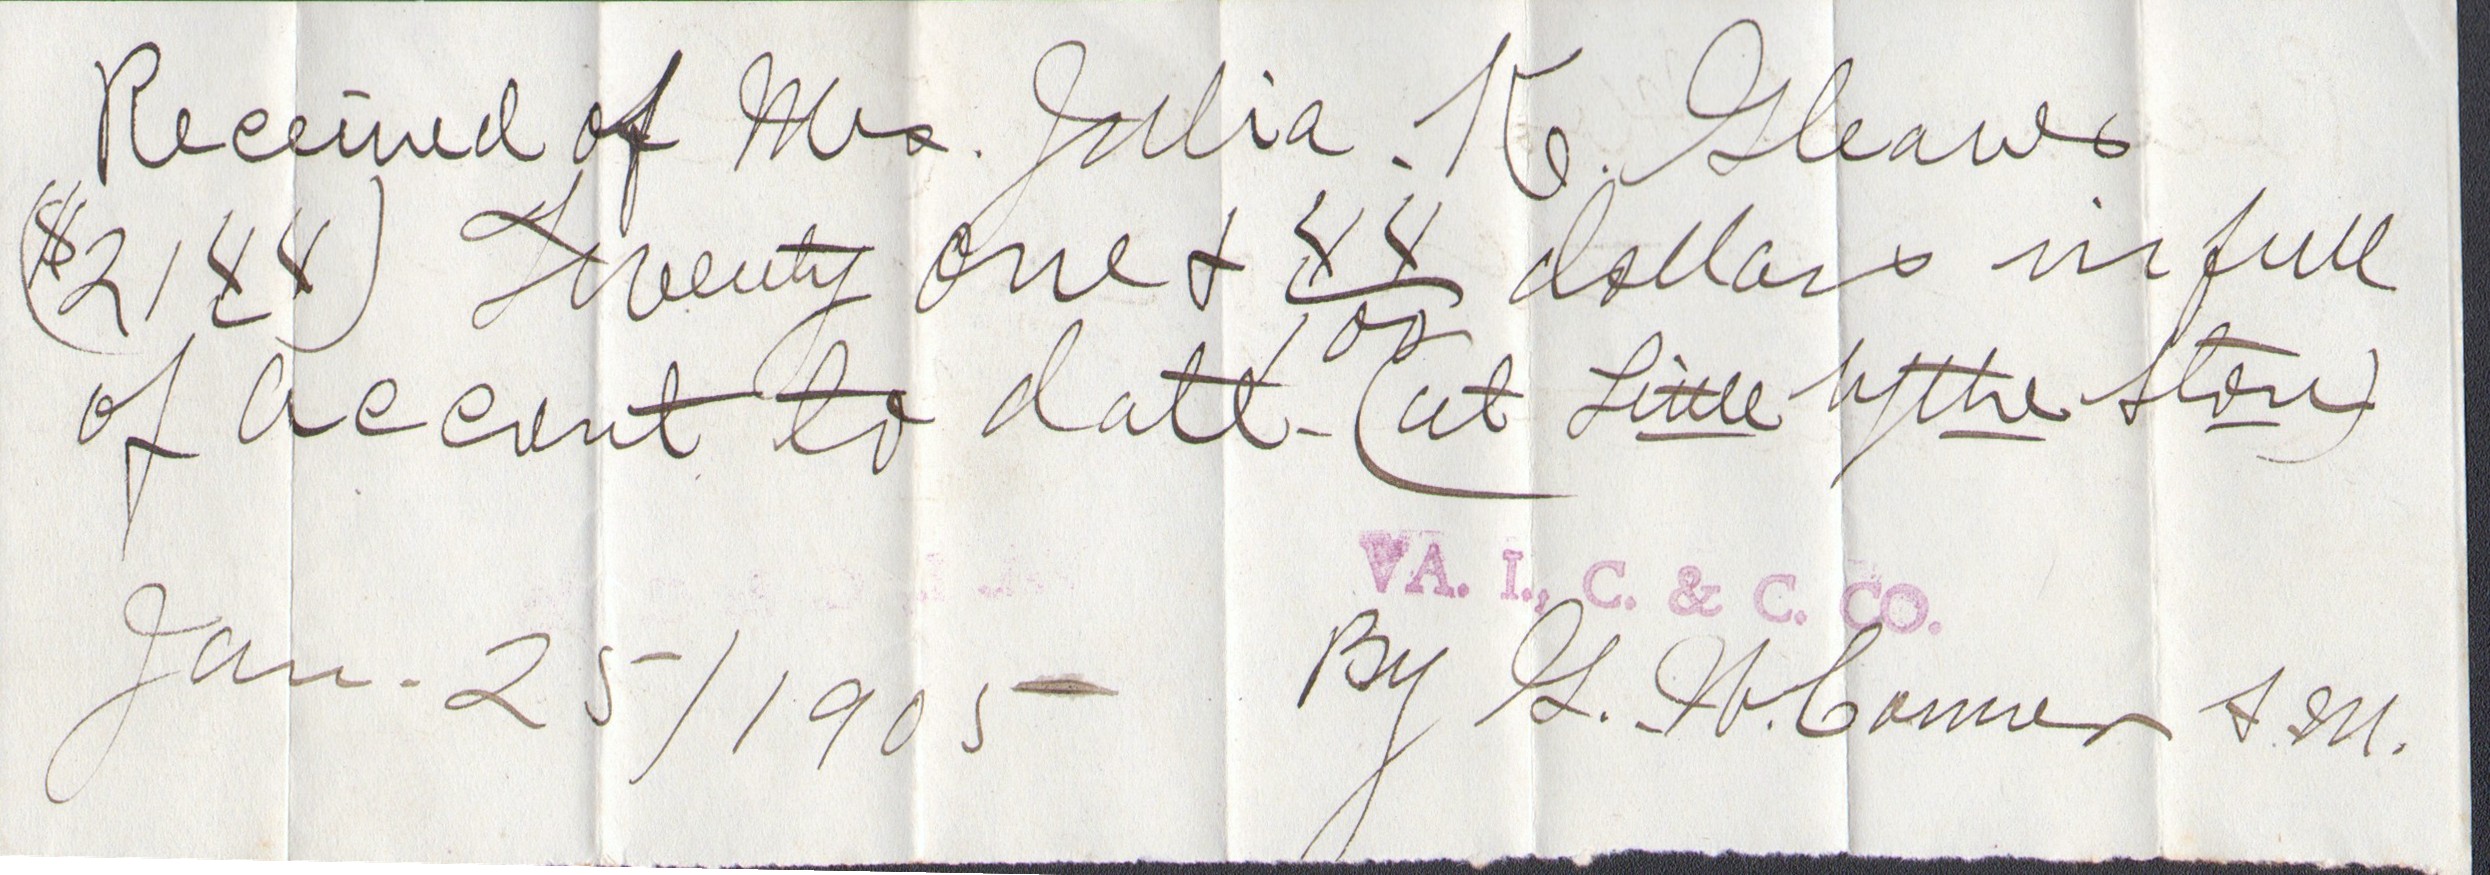 Received of Mrs. Julia. K. Gleaves
($21 88) Twenty one & 88/00 dollars in full
of accont to date - (at Little Wythe store)
VA. I., C. & C. CO.
Jan. 25/1905 By G. W. Comer S.M.